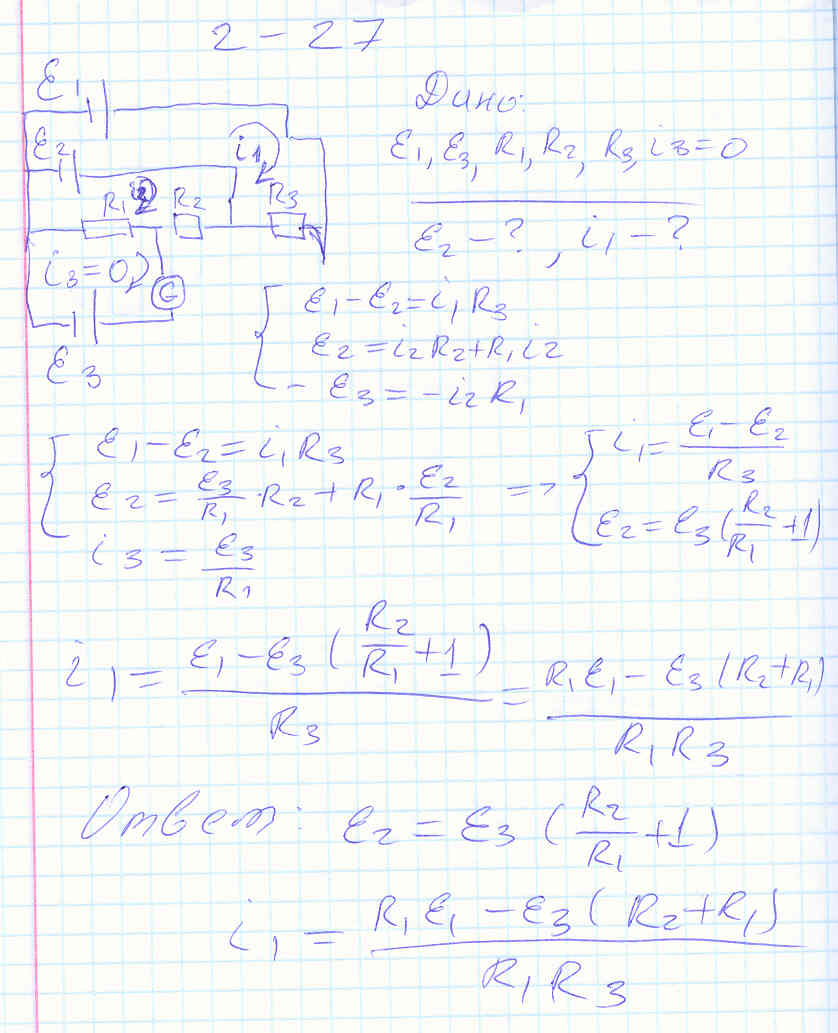 2 - 27
Ɛ1
Ɛ2
i1
R1 R2 R3
i3=0
G
Ɛ3
Дано:
Ɛ1, Ɛ3, R1, R2, R3, i3=0
Ɛ2 - ? , i1 - ?
Ɛ1 - Ɛ2 = i1 R3
Ɛ2 = i2 R2 + R1 i2
- Ɛ3 = - i2 R1
Ɛ1 - Ɛ2 = i1 R3
Ɛ2 = Ɛ3/R1 · R2 + R1 · Ɛ2/R1 =>
i3 = Ɛ3/R1
i1 = (Ɛ1 - Ɛ2)/R3
Ɛ2 = Ɛ3 (R2/R1 + 1)
i1 = (Ɛ1 - Ɛ3 (R2/R1 + 1))/R3 = (R1 Ɛ1 - Ɛ3 (R2 + R1))/(R1 R3)
Ответ: Ɛ2 = Ɛ3 (R2/R1 + 1)
i1 = (R1 Ɛ1 - Ɛ3 (R2 + R1))/(R1 R3)